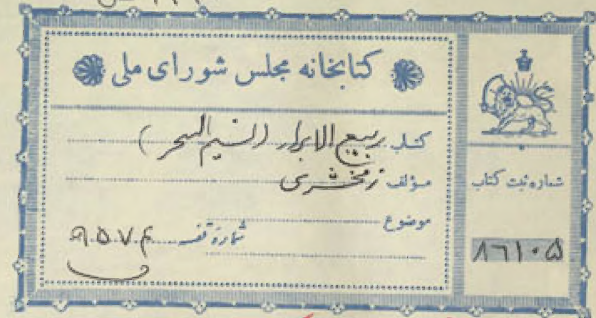 کتابخانه مجلس شورای ملی
کتاب ربیع الابرار (نسیم السحر)
مؤلف زمخشری
موضوع
شماره قفسه ۹۵۷۴
شماره ثبت کتاب
۸۶۱۰۵